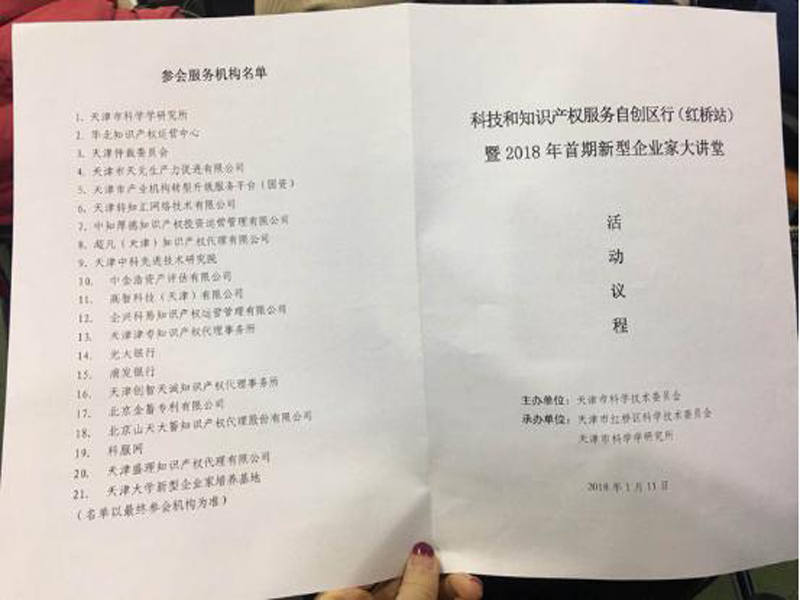 参会服务机构名单
1. 天津市科学学研究所
2. 华走知识产权运营中心
3. 天津仲裁委员会
4. 天津市天元生产力促进有限公司
5. 天津市产业机构转型升级服务平台（国资）
6. 天津转知汇网络技术有限公司
7. 中知厚德知识产权投资运营管理有限公司
8. 超凡（天津）知识产权代理有限公司
9. 天津中科先进技术研究院
10. 中金浩资产评估有限公司
11. 高智科技（天津）有限公司
12. 企兴科易知识产权运营管理有限公司
13. 天津津专知识产权代理事务所
14. 光大银行
15. 浦发银行
16. 天津创智天诚知识产权代理事务所
17. 北京金蓄专利有限公司
18. 北京山天大蓄知识产权代理股份有限公司
19. 科服网
20. 天津盛理知识产权代理有限公司
21. 天津大学新型企业家培养基地
（名单以最终参会机构为准）
科技和知识产权服务自创区行（红桥站）
暨 2018 年首期新型企业家大讲堂
活
动
议
程
主办单位：天津市科学技术委员会
承办单位：天津市红桥区科学技术委员会
天津市科学学研究所
2018 年 1 月 11 日